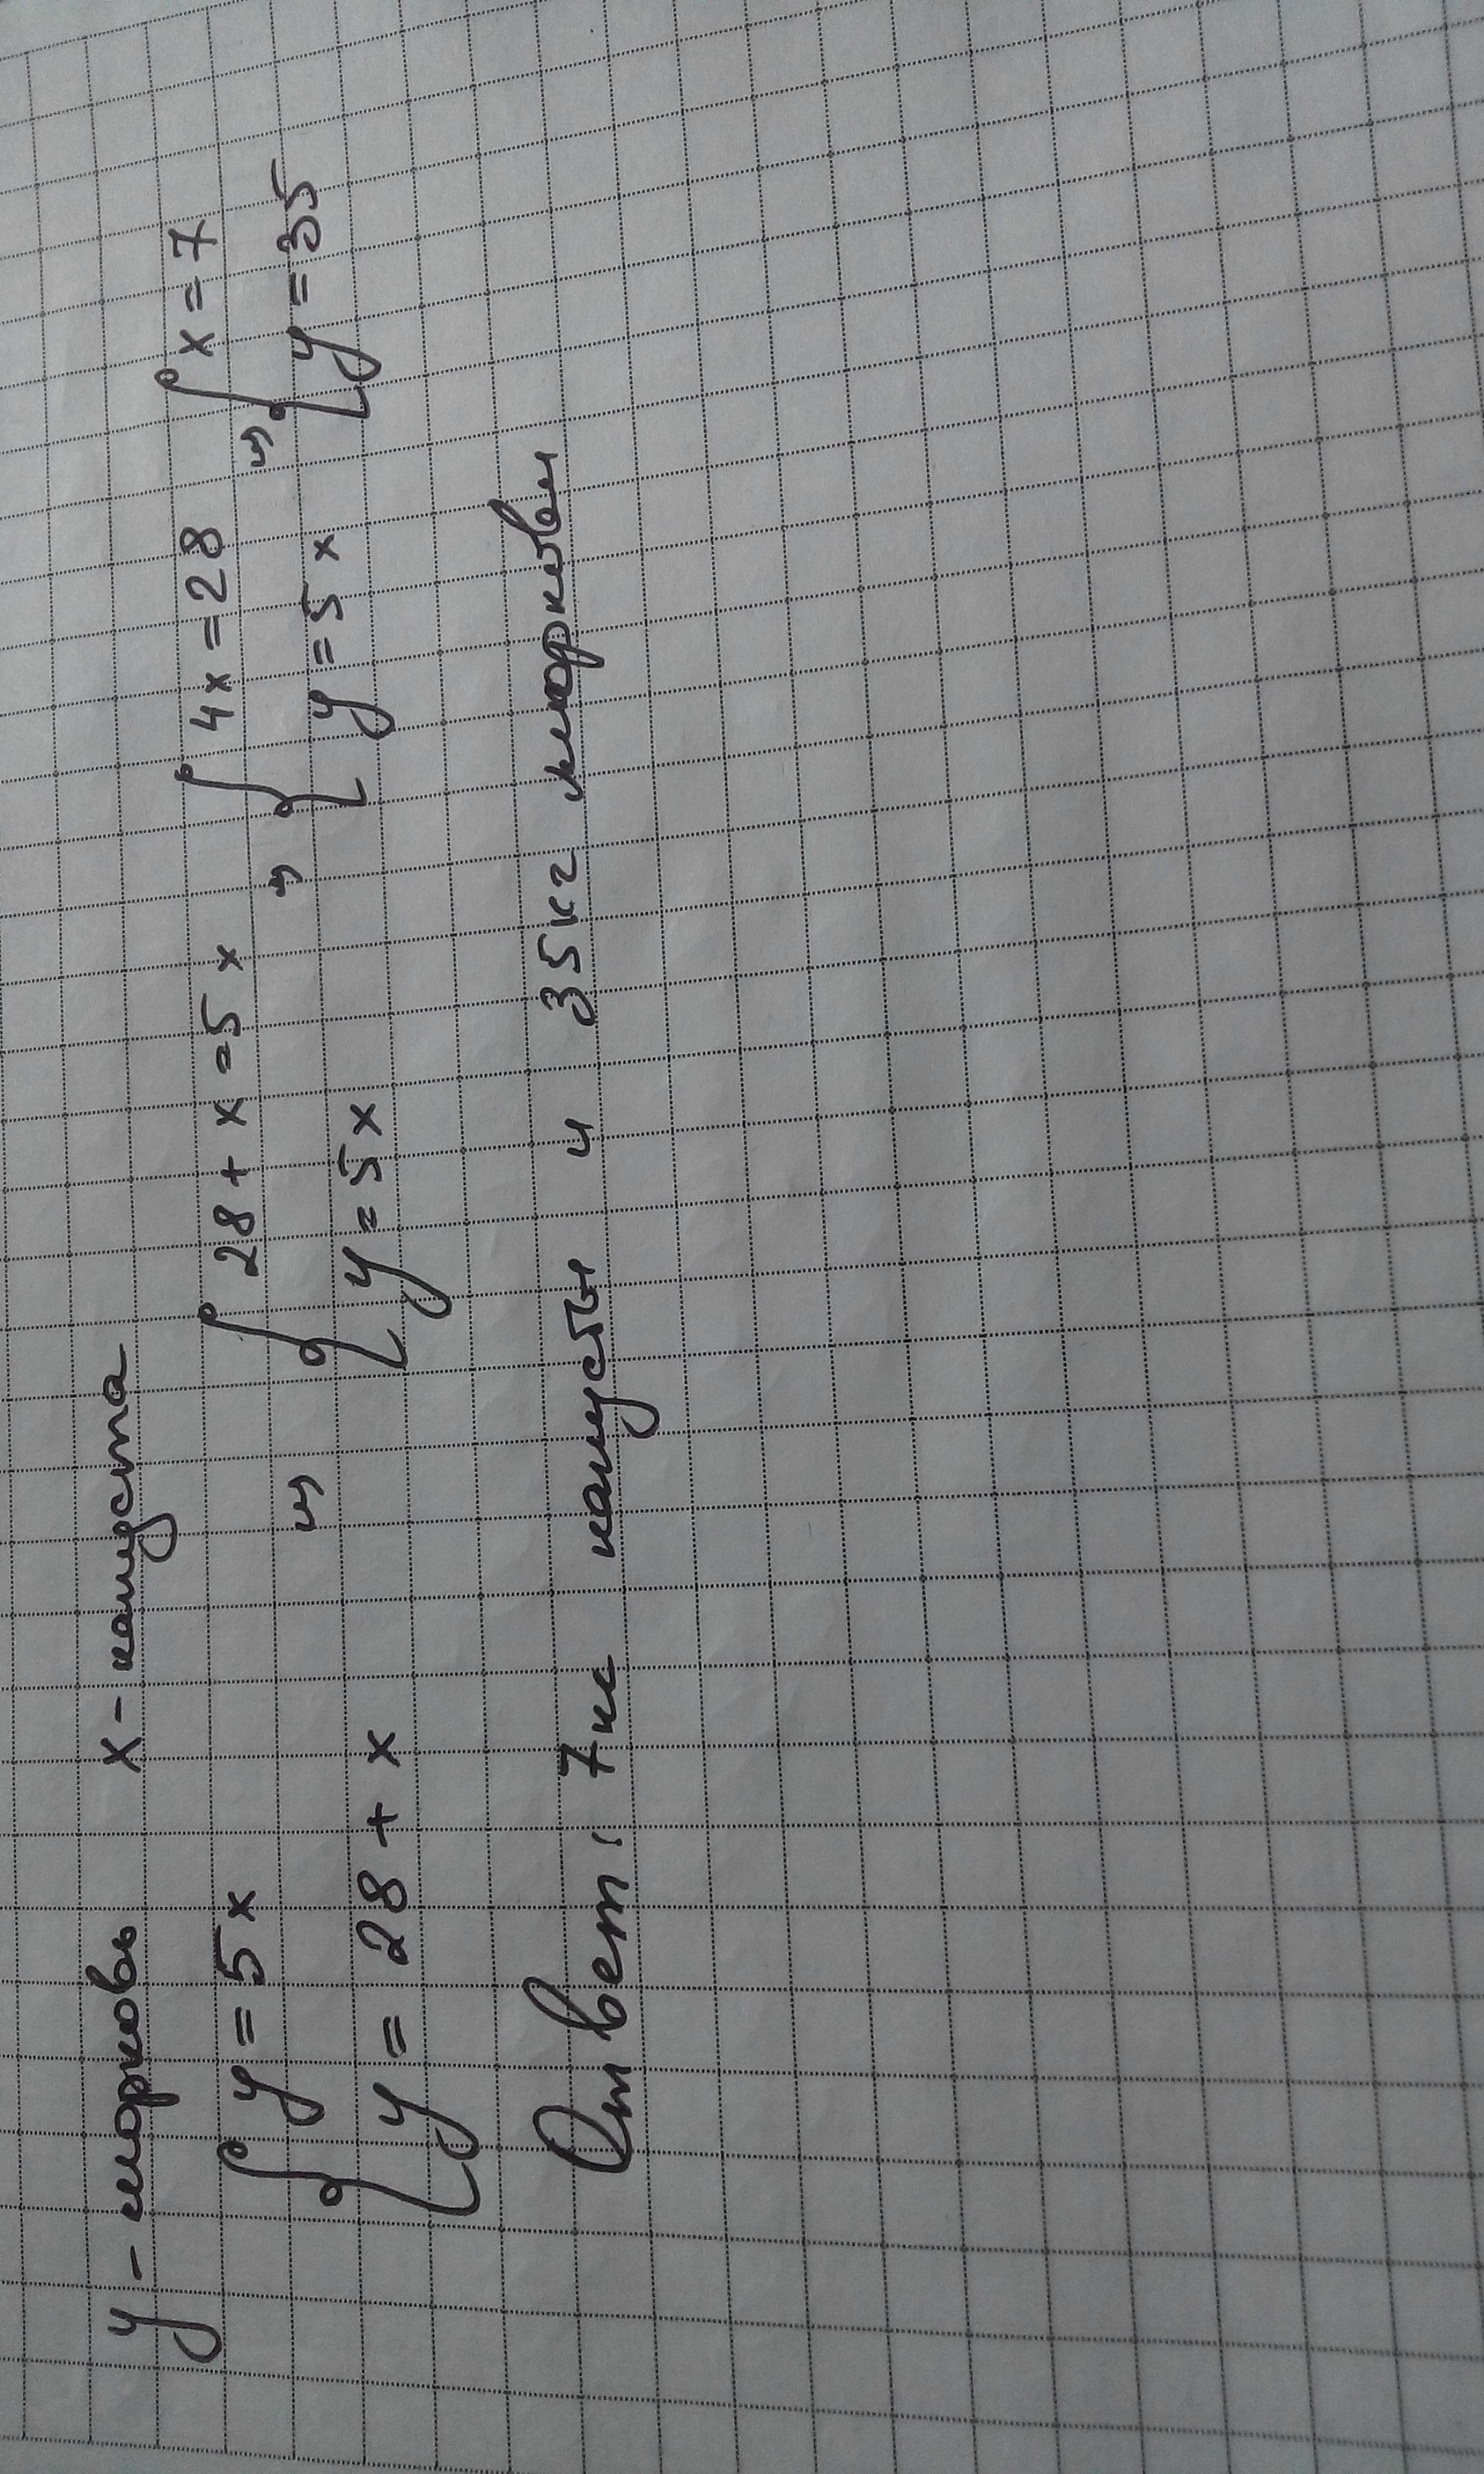 y - морковь x - капуста
{ y = 5x
y = 28 + x
=> { 28 + x = 5x
y = 5x
=> { 4x = 28
y = 5x
=> { x = 7
y = 35
Ответ: 7 кг капусты и 35 кг моркови